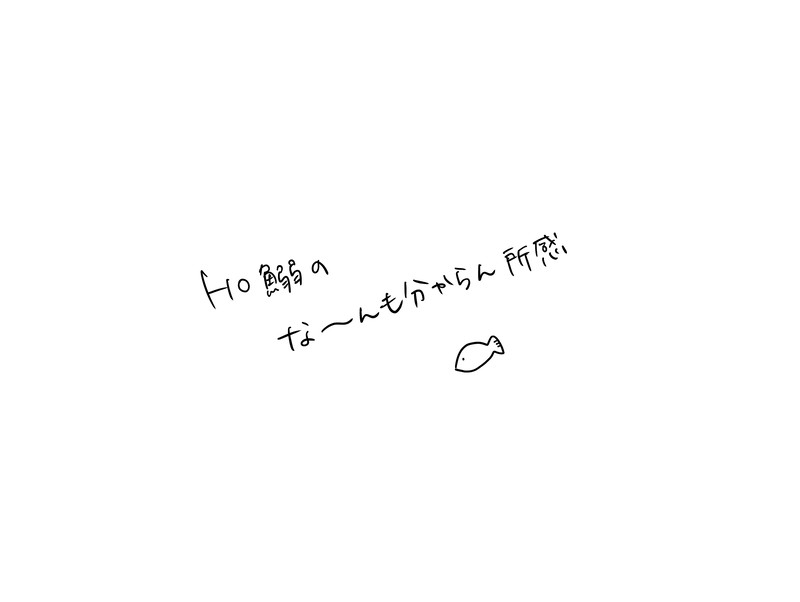 HO鰯の
な〜んも分からん所感